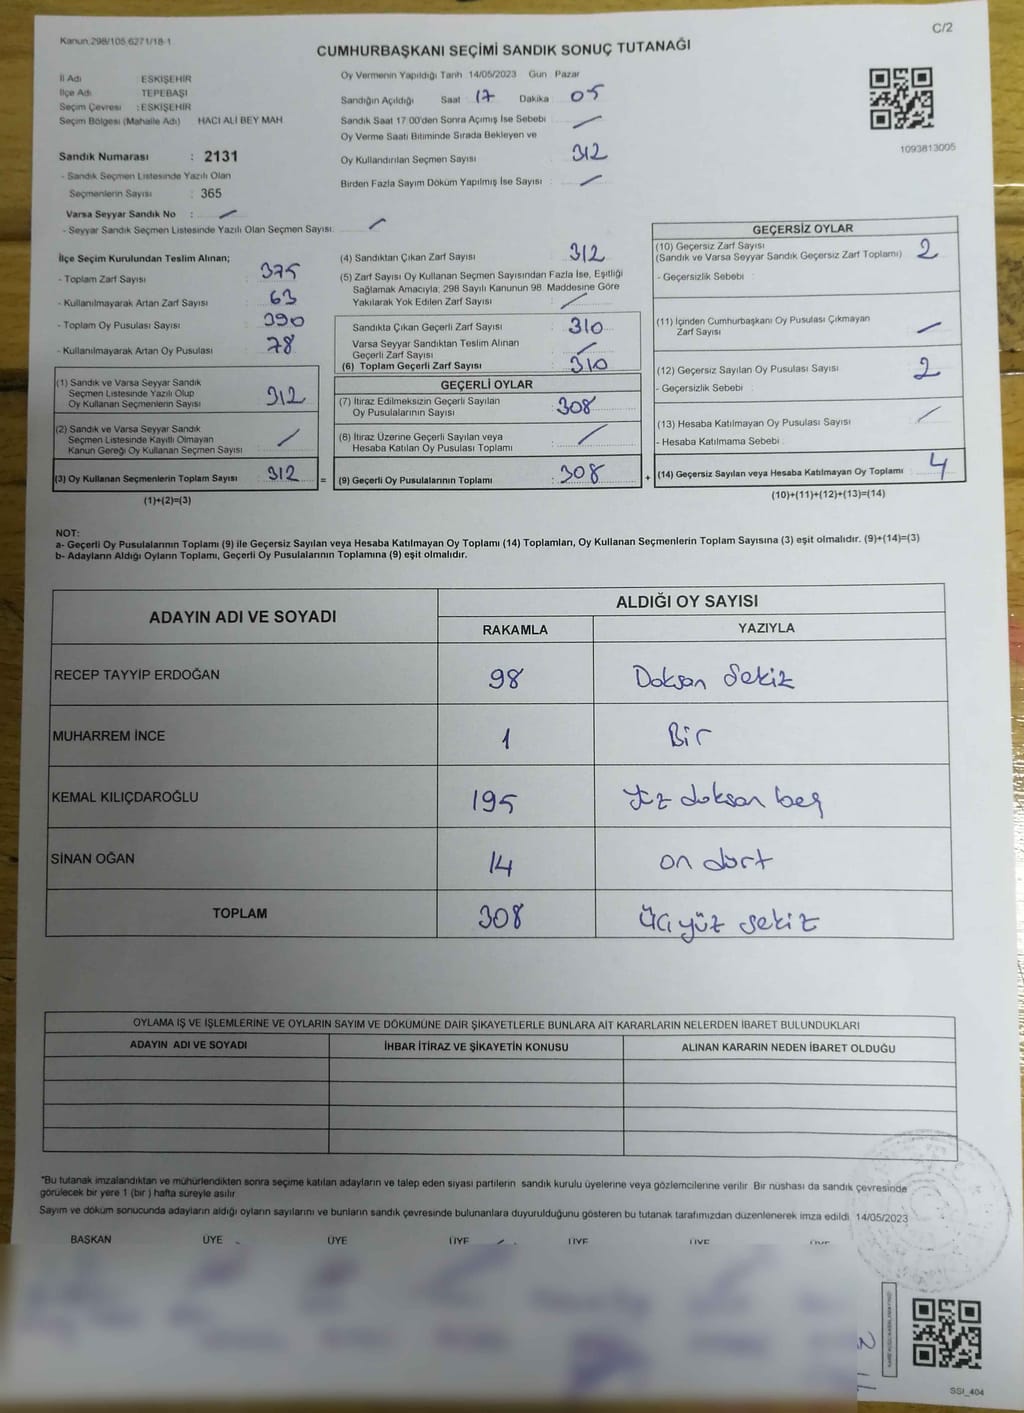 Kanun 298/105 6271/18-1
C/2
CUMHURBAŞKANI SEÇİMİ SANDIK SONUÇ TUTANAĞI
İl Adı : ESKİŞEHİR
İlçe Adı : TEPEBAŞI
Seçim Çevresi : ESKİŞEHİR
Seçim Bölgesi (Mahalle Adı) HACI ALİ BEY MAH
Sandık Numarası : 2131
- Sandık Seçmen Listesinde Yazılı Olan
Seçmenlerin Sayısı : 365
Varsa Seyyar Sandık No : /
- Seyyar Sandık Seçmen Listesinde Yazılı Olan Seçmen Sayısı: /
Oy Vermenin Yapıldığı Tarih 14/05/2023 Gün Pazar
Sandığın Açıldığı Saat 17 Dakika 05
Sandık Saat 17:00'den Sonra Açımış İse Sebebi /
Oy Verme Saati Bitiminde Sırada Bekleyen ve
Oy Kullandırılan Seçmen Sayısı 312
Birden Fazla Sayım Döküm Yapılmış İse Sayısı : /
1093813005
İlçe Seçim Kurulundan Teslim Alınan;
- Toplam Zarf Sayısı : 375
- Kullanılmayarak Artan Zarf Sayısı : 63
- Toplam Oy Pusulası Sayısı : 390
- Kullanılmayarak Artan Oy Pusulası : 78
(1) Sandık ve Varsa Seyyar Sandık
Seçmen Listesinde Yazılı Olup
Oy Kullanan Seçmenlerin Sayısı : 312
(2) Sandık ve Varsa Seyyar Sandık
Seçmen Listesinde Kayıtlı Olmayan
Kanun Gereği Oy Kullanan Seçmen Sayısı : /
(3) Oy Kullanan Seçmenlerin Toplam Sayısı : 312 =
(1)+(2)=(3)
(4) Sandıktan Çıkan Zarf Sayısı : 312
(5) Zarf Sayısı Oy Kullanan Seçmen Sayısından Fazla İse, Eşitliği
Sağlamak Amacıyla, 298 Sayılı Kanunun 98. Maddesine Göre
Yakılarak Yok Edilen Zarf Sayısı : /
Sandıkta Çıkan Geçerli Zarf Sayısı : 310
Varsa Seyyar Sandıktan Teslim Alınan
Geçerli Zarf Sayısı : /
(6) Toplam Geçerli Zarf Sayısı : 310
GEÇERLİ OYLAR
(7) İtiraz Edilmeksizin Geçerli Sayılan
Oy Pusulalarının Sayısı : 308
(8) İtiraz Üzerine Geçerli Sayılan veya
Hesaba Katılan Oy Pusulası Toplamı : /
(9) Geçerli Oy Pusulalarının Toplamı : 308 +
GEÇERSİZ OYLAR
(10) Geçersiz Zarf Sayısı
(Sandık ve Varsa Seyyar Sandık Geçersiz Zarf Toplamı) : 2
- Geçersizlik Sebebi :
(11) İçinden Cumhurbaşkanı Oy Pusulası Çıkmayan
Zarf Sayısı : /
(12) Geçersiz Sayılan Oy Pusulası Sayısı : 2
- Geçersizlik Sebebi :
(13) Hesaba Katılmayan Oy Pusulası Sayısı : /
- Hesaba Katılmama Sebebi :
(14) Geçersiz Sayılan veya Hesaba Katılmayan Oy Toplamı : 4
(10)+(11)+(12)+(13)=(14)
NOT:
a- Geçerli Oy Pusulalarının Toplamı (9) ile Geçersiz Sayılan veya Hesaba Katılmayan Oy Toplamı (14) Toplamları, Oy Kullanan Seçmenlerin Toplam Sayısına (3) eşit olmalıdır. (9)+(14)=(3)
b- Adayların Aldığı Oyların Toplamı, Geçerli Oy Pusulalarının Toplamına (9) eşit olmalıdır.
ADAYIN ADI VE SOYADI ALDIĞI OY SAYISI
RAKAMLA YAZIYLA
RECEP TAYYİP ERDOĞAN 98 Doksan Sekiz
MUHARREM İNCE 1 Bir
KEMAL KILIÇDAROĞLU 195 Yüz doksan beş
SİNAN OĞAN 14 on dört
TOPLAM 308 Üçyüz sekiz
OYLAMA İŞ VE İŞLEMLERİNE VE OYLARIN SAYIM VE DÖKÜMÜNE DAİR ŞİKAYETLERLE BUNLARA AİT KARARLARIN NELERDEN İBARET BULUNDUKLARI
ADAYIN ADI VE SOYADI İHBAR İTİRAZ VE ŞİKAYETİN KONUSU ALINAN KARARIN NEDEN İBARET OLDUĞU
*Bu tutanak imzalandıktan ve mühürlendikten sonra seçime katılan adayların ve talep eden siyasi partilerin sandık kurulu üyelerine veya gözlemcilerine verilir. Bir nüshası da sandık çevresinde
görülecek bir yere 1 (bir ) hafta süreyle asılır.
Sayım ve döküm sonucunda adayların aldığı oyların sayılarını ve bunların sandık çevresinde bulunanlara duyurulduğunu gösteren bu tutanak tarafımızdan düzenlenerek imza edildi. 14/05/2023
BAŞKAN ÜYE ÜYE ÜYE ÜYE ÜYE ÜYE
SSI_404